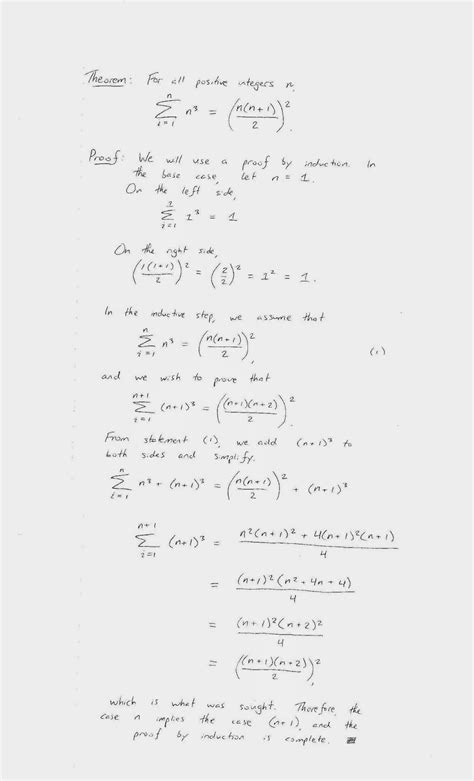 Theorem: For all positive integers n,
\sum_{i=1}^{n} n^3 = \left(\frac{n(n+1)}{2}\right)^2.
Proof: We will use a proof by induction. In
the base case, let n = 1.
On the left side,
\sum_{i=1}^{1} 1^3 = 1
On the right side,
\left(\frac{1(1+1)}{2}\right)^2 = \left(\frac{2}{2}\right)^2 = 1^2 = 1.
In the inductive step, we assume that
\sum_{i=1}^{n} n^3 = \left(\frac{n(n+1)}{2}\right)^2, (1)
and we wish to prove that
\sum_{i=1}^{n+1} (n+1)^3 = \left(\frac{(n+1)(n+2)}{2}\right)^2.
From statement (1), we add (n+1)^3 to
both sides and simplify.
\sum_{i=1}^{n} n^3 + (n+1)^3 = \left(\frac{n(n+1)}{2}\right)^2 + (n+1)^3
\sum_{i=1}^{n+1} (n+1)^3 = \frac{n^2(n+1)^2 + 4(n+1)^2(n+1)}{4}
= \frac{(n+1)^2(n^2+4n+4)}{4}
= \frac{(n+1)^2(n+2)^2}{4}
= \left(\frac{(n+1)(n+2)}{2}\right)^2
which is what was sought. Therefore, the
case n implies the case (n+1), and the
proof by induction is complete.